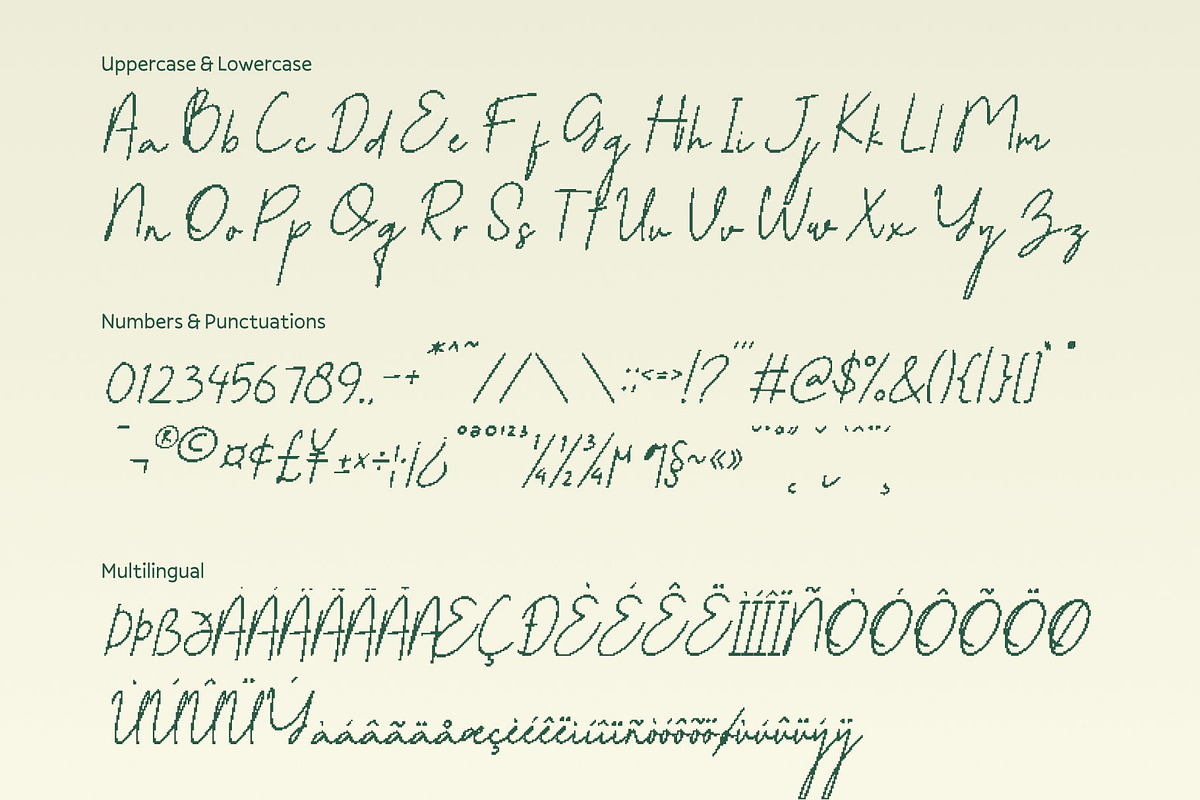 Uppercase & Lowercase
Aa Bb Cc Dd Ee Ff Gg Hh Ii Jj Kk Ll Mm
Nn Oo Pp Qq Rr Ss Tt Uu Vv Ww Xx Yy Zz
Numbers & Punctuations
0123456789.,-+*^~//\ \:;<=>!?'"#@$%&(){[|}[]
¯¬®©¤¢£¥±×÷¦¿ºª0123¼½¾µ¶§~«»
Multilingual
ÞþßðÀÁÂÃÄÅÆÇÐÈÉÊËÌÍÎÏÑÒÓÔÕÖØ
ÙÚÛÜÝàáâãäåæçèéêëìíîïñòóôõöøùúûüýÿ